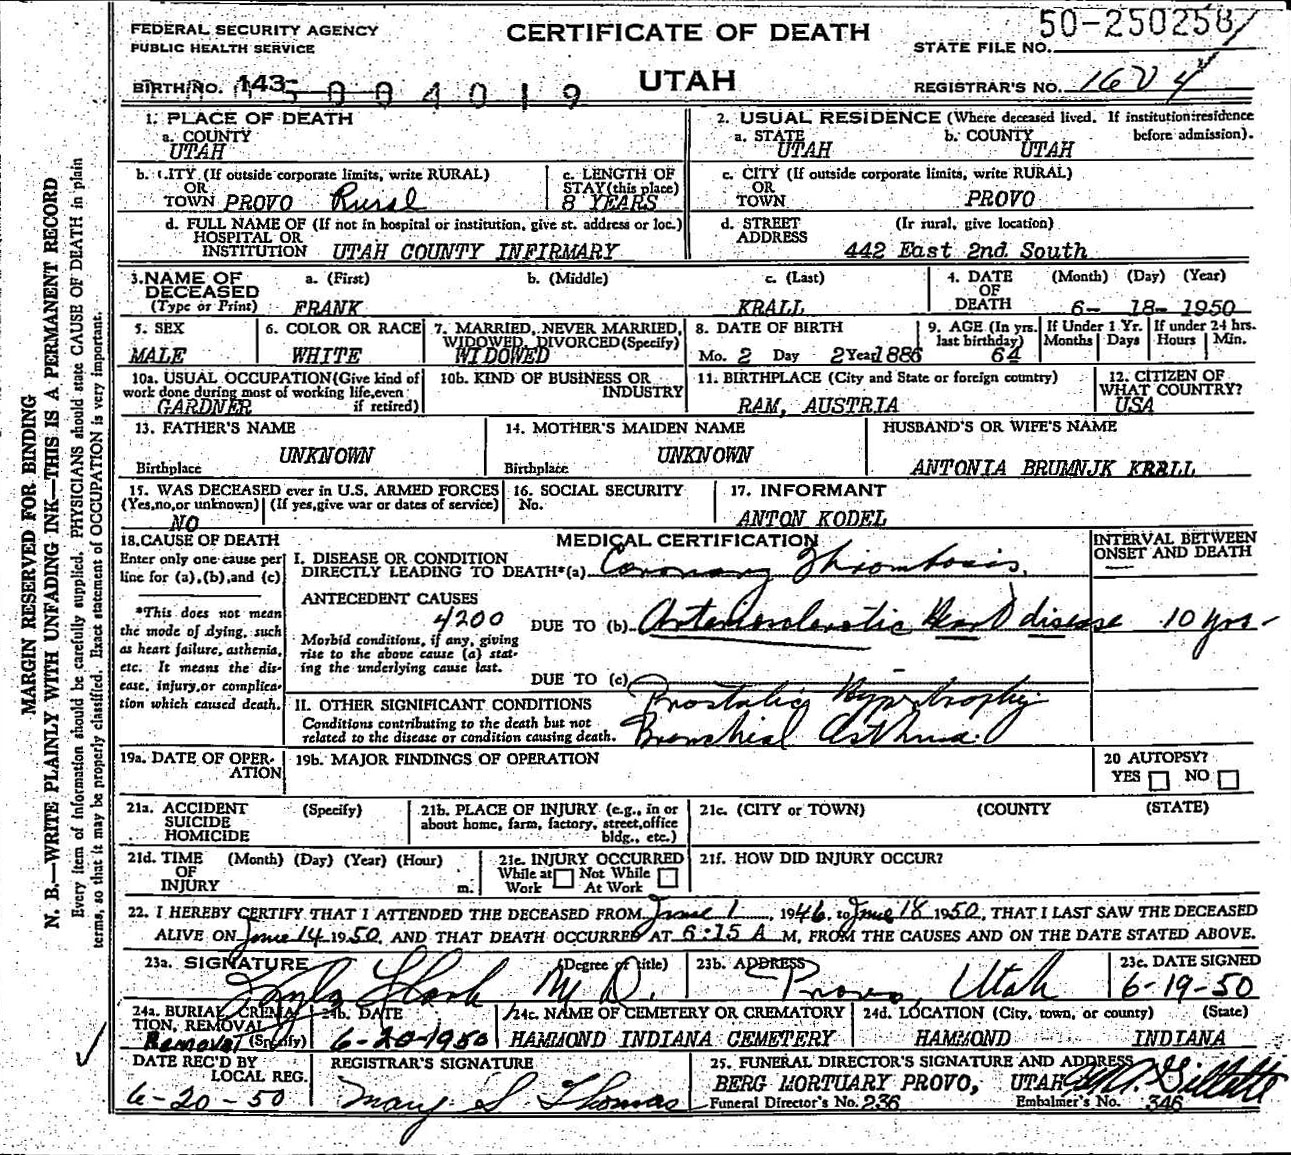 FEDERAL SECURITY AGENCY
PUBLIC HEALTH SERVICE
CERTIFICATE OF DEATH
UTAH
50-250258
STATE FILE NO.
BIRTH NO. 143-
004019
REGISTRAR'S NO.
1. PLACE OF DEATH
a. COUNTY
UTAH
2. USUAL RESIDENCE (Where deceased lived. If institution: residence before admission).
a. STATE UTAH b. COUNTY UTAH
b. CITY (If outside corporate limits, write RURAL)
OR
TOWN PROVO Rural
c. LENGTH OF
STAY (this place)
8 YEARS
c. CITY (If outside corporate limits, write RURAL)
OR
TOWN PROVO
d. FULL NAME OF (If not in hospital or institution, give st. address or loc.)
HOSPITAL OR
INSTITUTION UTAH COUNTY INFIRMARY
d. STREET (If rural, give location)
ADDRESS 442 East 2nd. South
3. NAME OF
DECEASED
(Type or Print)
a. (First) b. (Middle) c. (Last)
FRANK KRALL
4. DATE (Month) (Day) (Year)
OF
DEATH 6- 18- 1950
5. SEX
MALE
6. COLOR OR RACE
WHITE
7. MARRIED, NEVER MARRIED,
WIDOWED, DIVORCED (Specify)
WIDOWED
8. DATE OF BIRTH
Mo. 2 Day 2 Year 1886
9. AGE (In yrs.
last birthday)
64
If Under 1 Yr.
Months Days
If under 24 hrs.
Hours Min.
10a. USUAL OCCUPATION (Give kind of
work done during most of working life, even
if retired)
GARDNER
10b. KIND OF BUSINESS OR
INDUSTRY
11. BIRTHPLACE (City and State or foreign country)
RAM, AUSTRIA
12. CITIZEN OF
WHAT COUNTRY?
USA
13. FATHER'S NAME
UNKNOWN
Birthplace
14. MOTHER'S MAIDEN NAME
UNKNOWN
Birthplace
HUSBAND'S OR WIFE'S NAME
ANTONIA BRUMNJK KRALL
15. WAS DECEASED ever in U.S. ARMED FORCES
(Yes, no, or unknown) (If yes, give war or dates of service)
NO
16. SOCIAL SECURITY
No.
17. INFORMANT
ANTON KODEL
18. CAUSE OF DEATH
Enter only one cause per
line for (a), (b), and (c)
*This does not mean
the mode of dying, such
as heart failure, asthenia,
etc. It means the dis-
ease, injury, or complica-
tion which caused death.
MEDICAL CERTIFICATION
INTERVAL BETWEEN
ONSET AND DEATH
I. DISEASE OR CONDITION
DIRECTLY LEADING TO DEATH*(a) Coronary Thrombosis.
ANTECEDENT CAUSES
4200 DUE TO (b) Arteriosclerotic Heart disease 10 yrs-
Morbid conditions, if any, giving
rise to the above cause (a) stat-
ing the underlying cause last.
DUE TO (c)
II. OTHER SIGNIFICANT CONDITIONS
Conditions contributing to the death but not
related to the disease or condition causing death.
Prostatic Hypertrophy
Bronchial Asthma.
19a. DATE OF OPER-
ATION
19b. MAJOR FINDINGS OF OPERATION
20 AUTOPSY?
YES NO
21a. ACCIDENT (Specify)
SUICIDE
HOMICIDE
21b. PLACE OF INJURY (e.g., in or
about home, farm, factory, street, office
bldg., etc.)
21c. (CITY or TOWN) (COUNTY) (STATE)
21d. TIME (Month) (Day) (Year) (Hour)
OF
INJURY m.
21e. INJURY OCCURRED
While at Not While
Work At Work
21f. HOW DID INJURY OCCUR?
22. I HEREBY CERTIFY THAT I ATTENDED THE DECEASED FROM June 1, 1946, to June 18 1950, THAT I LAST SAW THE DECEASED
ALIVE ON June 14 1950, AND THAT DEATH OCCURRED AT 6:15 A M. FROM THE CAUSES AND ON THE DATE STATED ABOVE.
23a. SIGNATURE (Degree or title)
M.D.
23b. ADDRESS
Provo, Utah
23c. DATE SIGNED
6-19-50
24a. BURIAL, CREMA-
TION, REMOVAL
Removal (Specify)
24b. DATE
6-20-1950
24c. NAME OF CEMETERY OR CREMATORY
HAMMOND INDIANA CEMETERY
24d. LOCATION (City, town, or county) (State)
HAMMOND INDIANA
DATE REC'D BY
LOCAL REG.
6-20-50
REGISTRAR'S SIGNATURE
Mary S Thomas
25. FUNERAL DIRECTOR'S SIGNATURE AND ADDRESS
BERG MORTUARY PROVO, UTAH
Funeral Director's No. 236 Embalmer's No. 346
MARGIN RESERVED FOR BINDING
N. B.—WRITE PLAINLY WITH UNFADING INK—THIS IS A PERMANENT RECORD
Every item of information should be carefully supplied. PHYSICIANS should state CAUSE OF DEATH in plain
terms, so that it may be properly classified. Exact statement of OCCUPATION is very important.